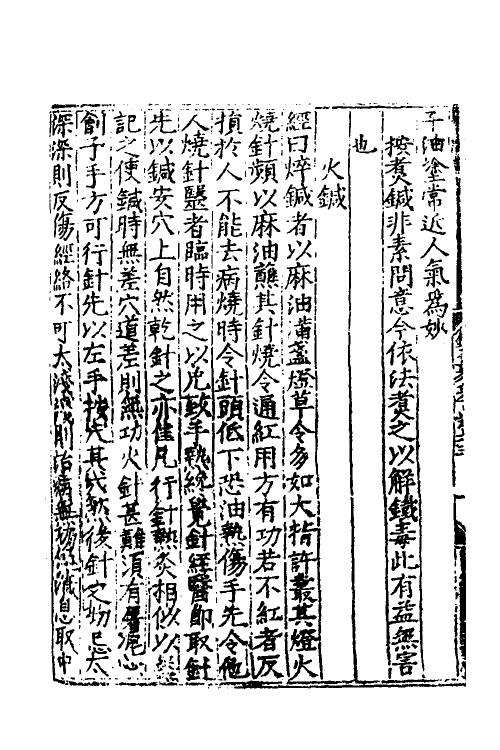 子油塗常近人氣為妙
按煮鍼非素問意今依法煮之以解鐵毒此有益無害
也
火鍼
經曰焠鍼者以麻油滿盞燈草令多如大指許叢其燈火
燒針頻以麻油蘸其針燒令通紅用方有功若不紅者反
損於人不能去病燒時令針頭低下恐油熱傷手先令他
人燒針醫者臨時用之以免致手熱纔覺針紅醫即取針
先以鍼安穴上自然乾針之亦佳凡行針與灸相似以
記之使鍼時無差穴道差則無功火針甚難須有屠心
劊子手方可行針先以左手按定其穴然後針之切忌太
深深則反傷經絡不可太淺淺則治病無功消息取中